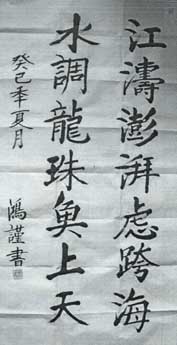 江濤澎湃虑跨海
水調龍珠奐上天
癸巳秊夏月
鴻謹書